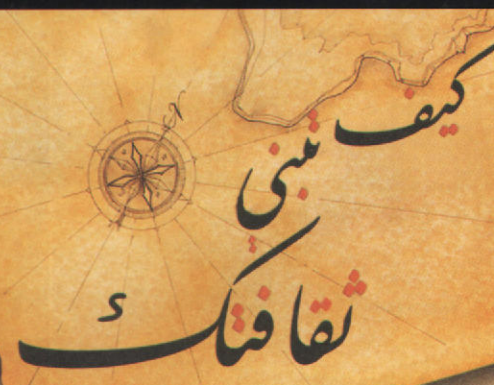 كيف
تبني
ثقافتك
N